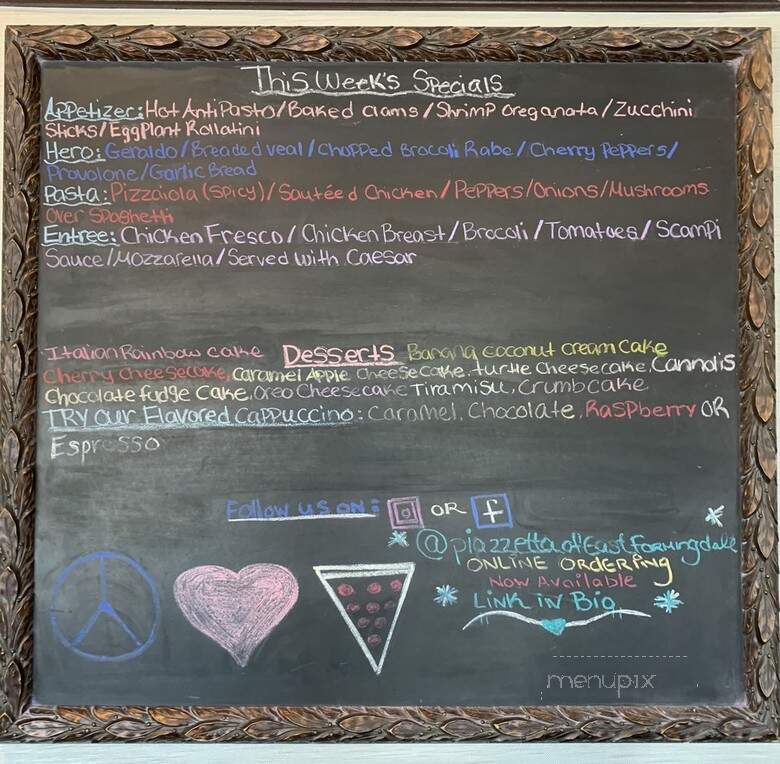 This Week's Specials
Appetizer: Hot AntiPasto/Baked Clams/Shrimp Oreganata/Zucchini
Sticks/EggPlant Rollatini
Hero: Geraldo/Breaded Veal/Chopped Brocoli Rabe/Cherry Peppers/
Provolone/Garlic Bread
Pasta: Pizzaiola (Spicy)/Sautéed Chicken/Peppers/Onions/Mushrooms
Over Spaghetti
Entree: Chicken Fresco/Chicken Breast/Brocoli/Tomatoes/Scampi
Sauce/Mozzarella/Served with Caesar
Italian Rainbow Cake Desserts Banana Coconut Cream Cake
Cherry Cheesecake, Caramel Apple Cheesecake, Turtle Cheesecake, Cannolis
Chocolate fudge Cake, Oreo Cheesecake Tiramisu, Crumbcake
TRY our Flavored Cappuccino: Caramel, Chocolate, Raspberry OR
Espresso
Follow us on: OR f
@piazzettaofEastFarmingdale
ONLINE ORDERING
Now Available
Link in Bio
menupix